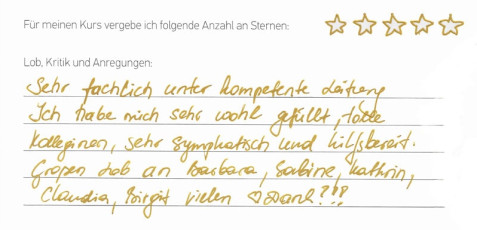 Für meinen Kurs vergebe ich folgende Anzahl an Sternen:
Lob, Kritik und Anregungen:
Sehr fachlich unter kompetente Leitung
Ich habe mich sehr wohl gefüllt, tolle
Kolleginen, sehr symphatisch und hilfsbereit.
Großen Lob an Barbara, Sabine, Kathrin,
Claudia, Birgit vielen ♡ Dank?!!